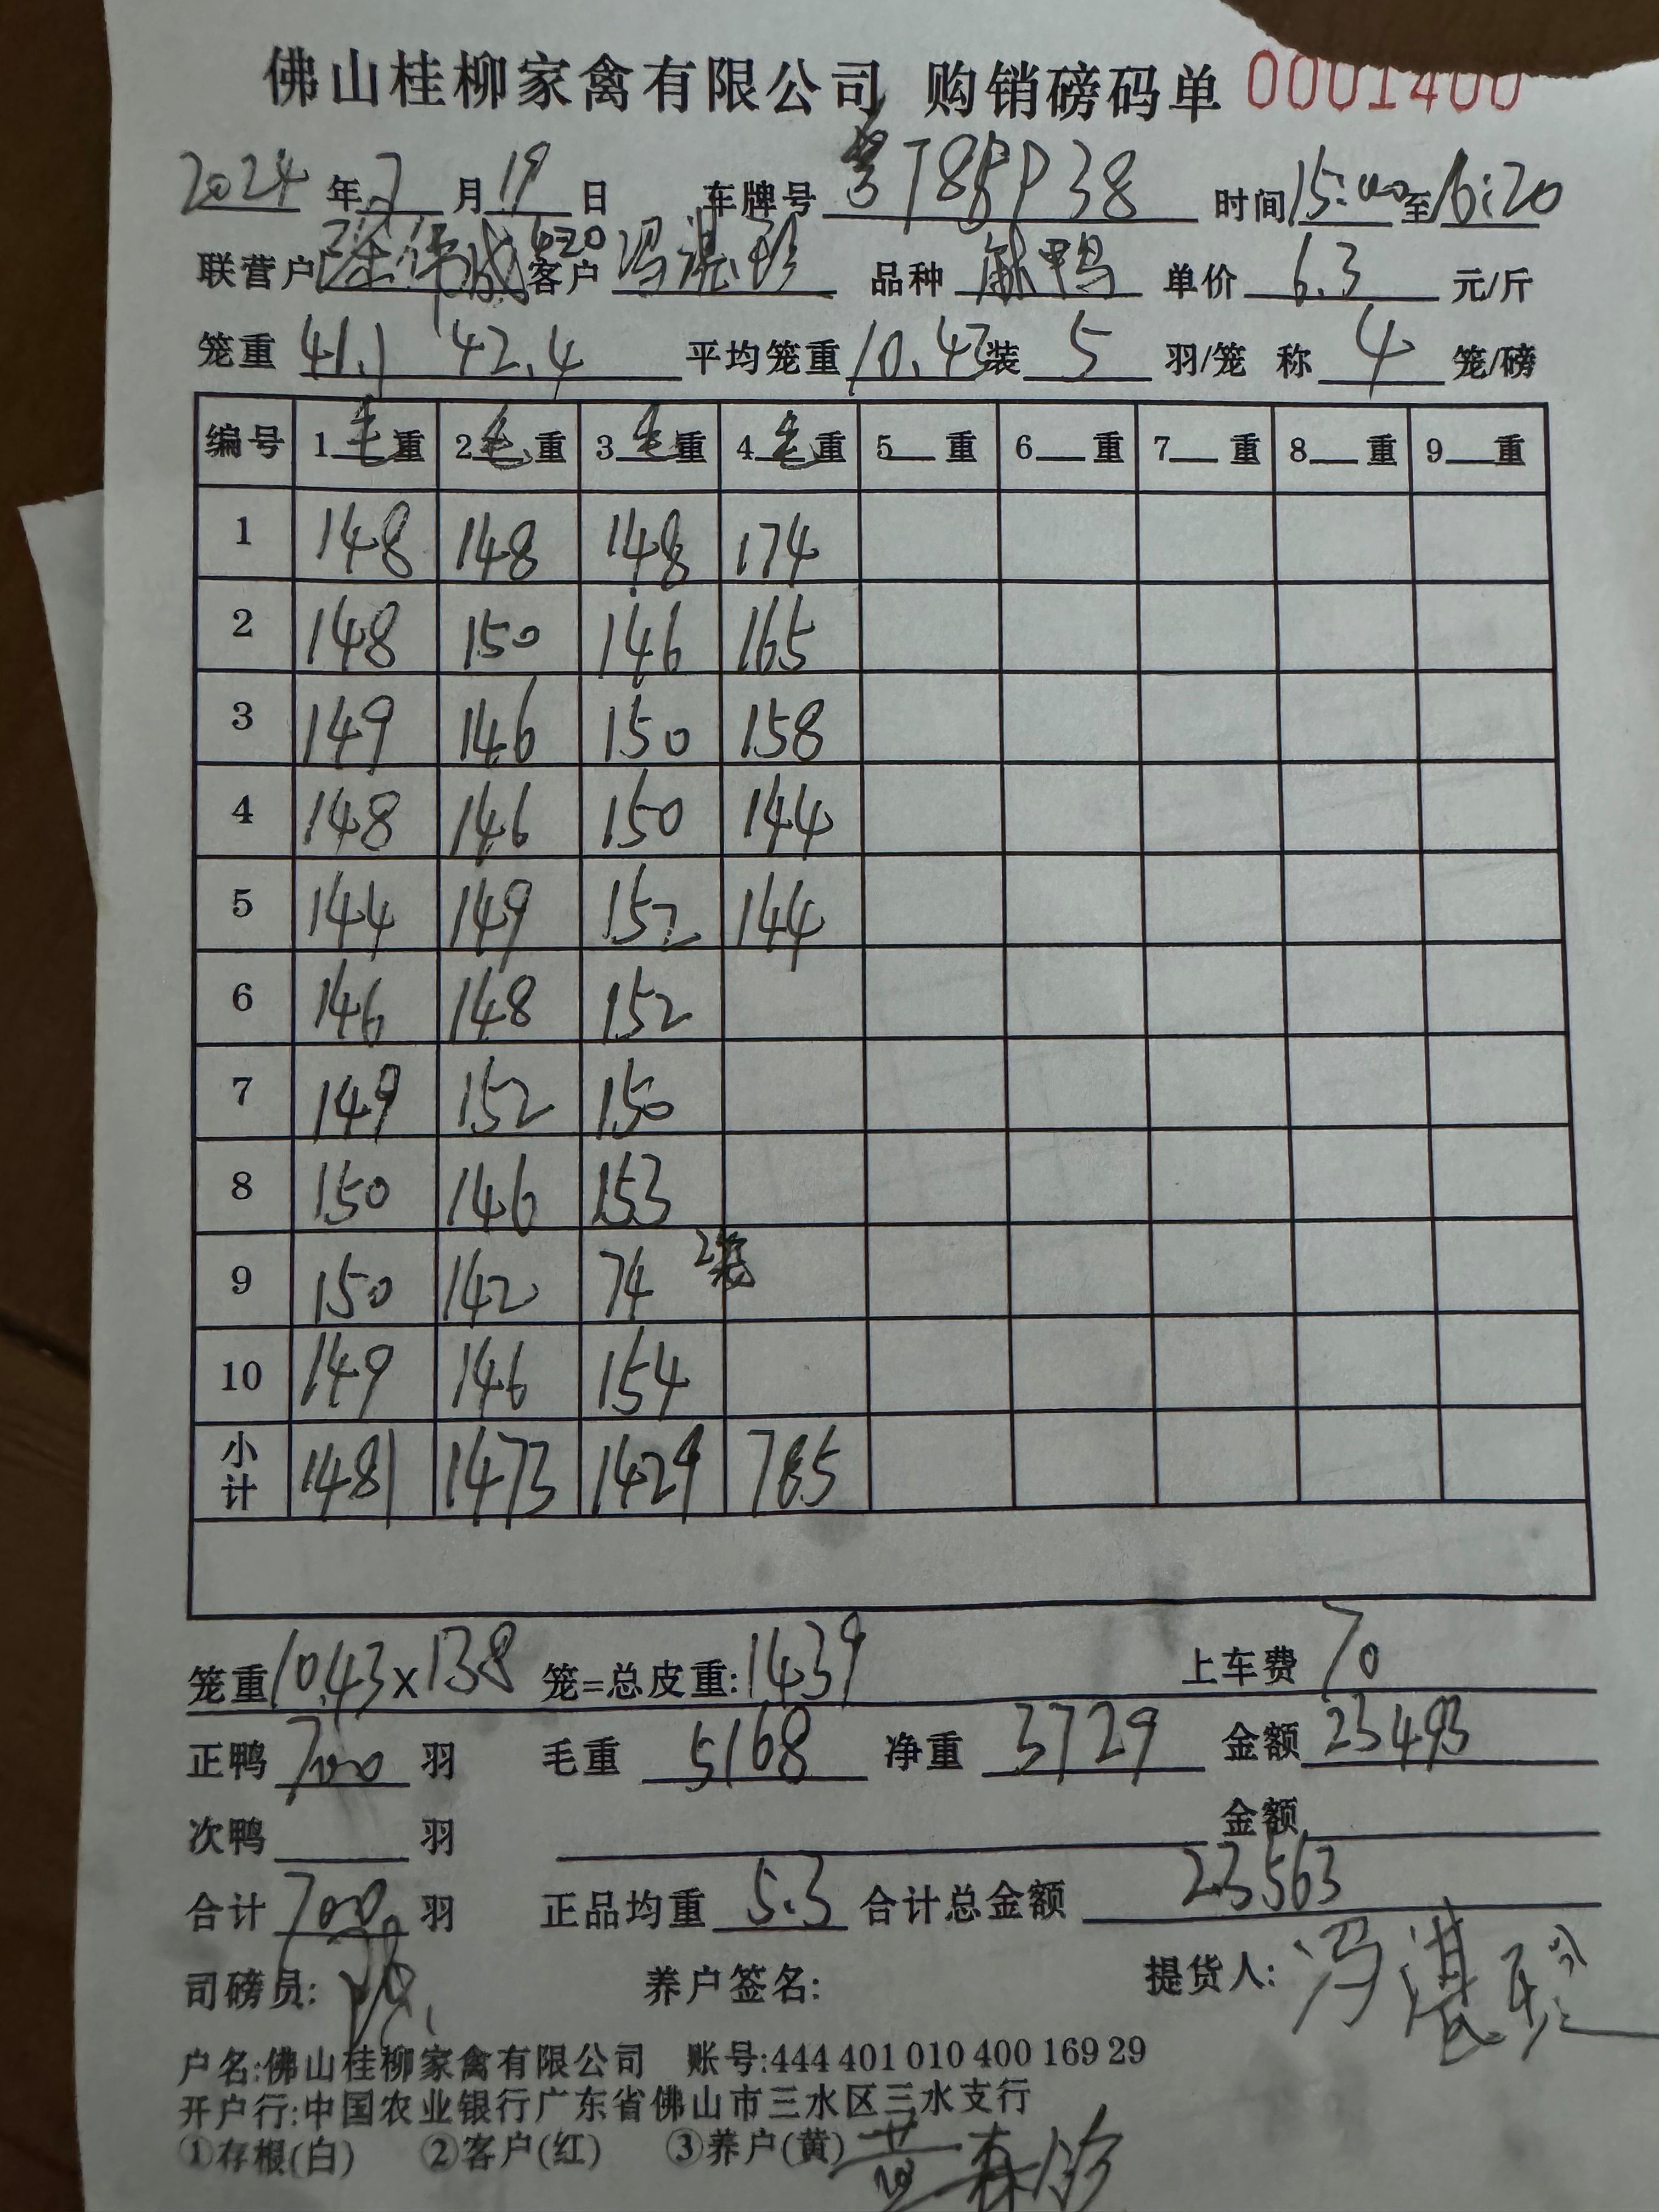 佛山桂柳家禽有限公司 购销磅码单 0001400
2024年7月19日 车牌号 粤T8BP38 时间15:00至16:20
联营户 客户 冯湛彬 品种 麻鸭 单价 6.3 元/斤
笼重 41.1 42.4 平均笼重 10.43 装 5 羽/笼 称 4 笼/磅
编号 1毛重 2毛重 3毛重 4毛重 5 重 6 重 7 重 8 重 9 重
1 148 148 148 174
2 148 150 146 165
3 149 146 150 158
4 148 146 150 144
5 144 149 152 144
6 146 148 152
7 149 152 150
8 150 146 153
9 150 142 74 2笼
10 149 146 154
小计 1481 1473 1429 785
笼重10.43×138 笼=总皮重:1439 上车费 70
正鸭 700 羽 毛重 5168 净重 3729 金额 23493
次鸭 羽 金额
合计 700 羽 正品均重 5.3 合计总金额 23563
司磅员: 养户签名: 提货人: 冯湛彬
户名:佛山桂柳家禽有限公司 账号:444 401 010 400 169 29
开户行:中国农业银行广东省佛山市三水区三水支行
①存根(白) ②客户(红) ③养户(黄)